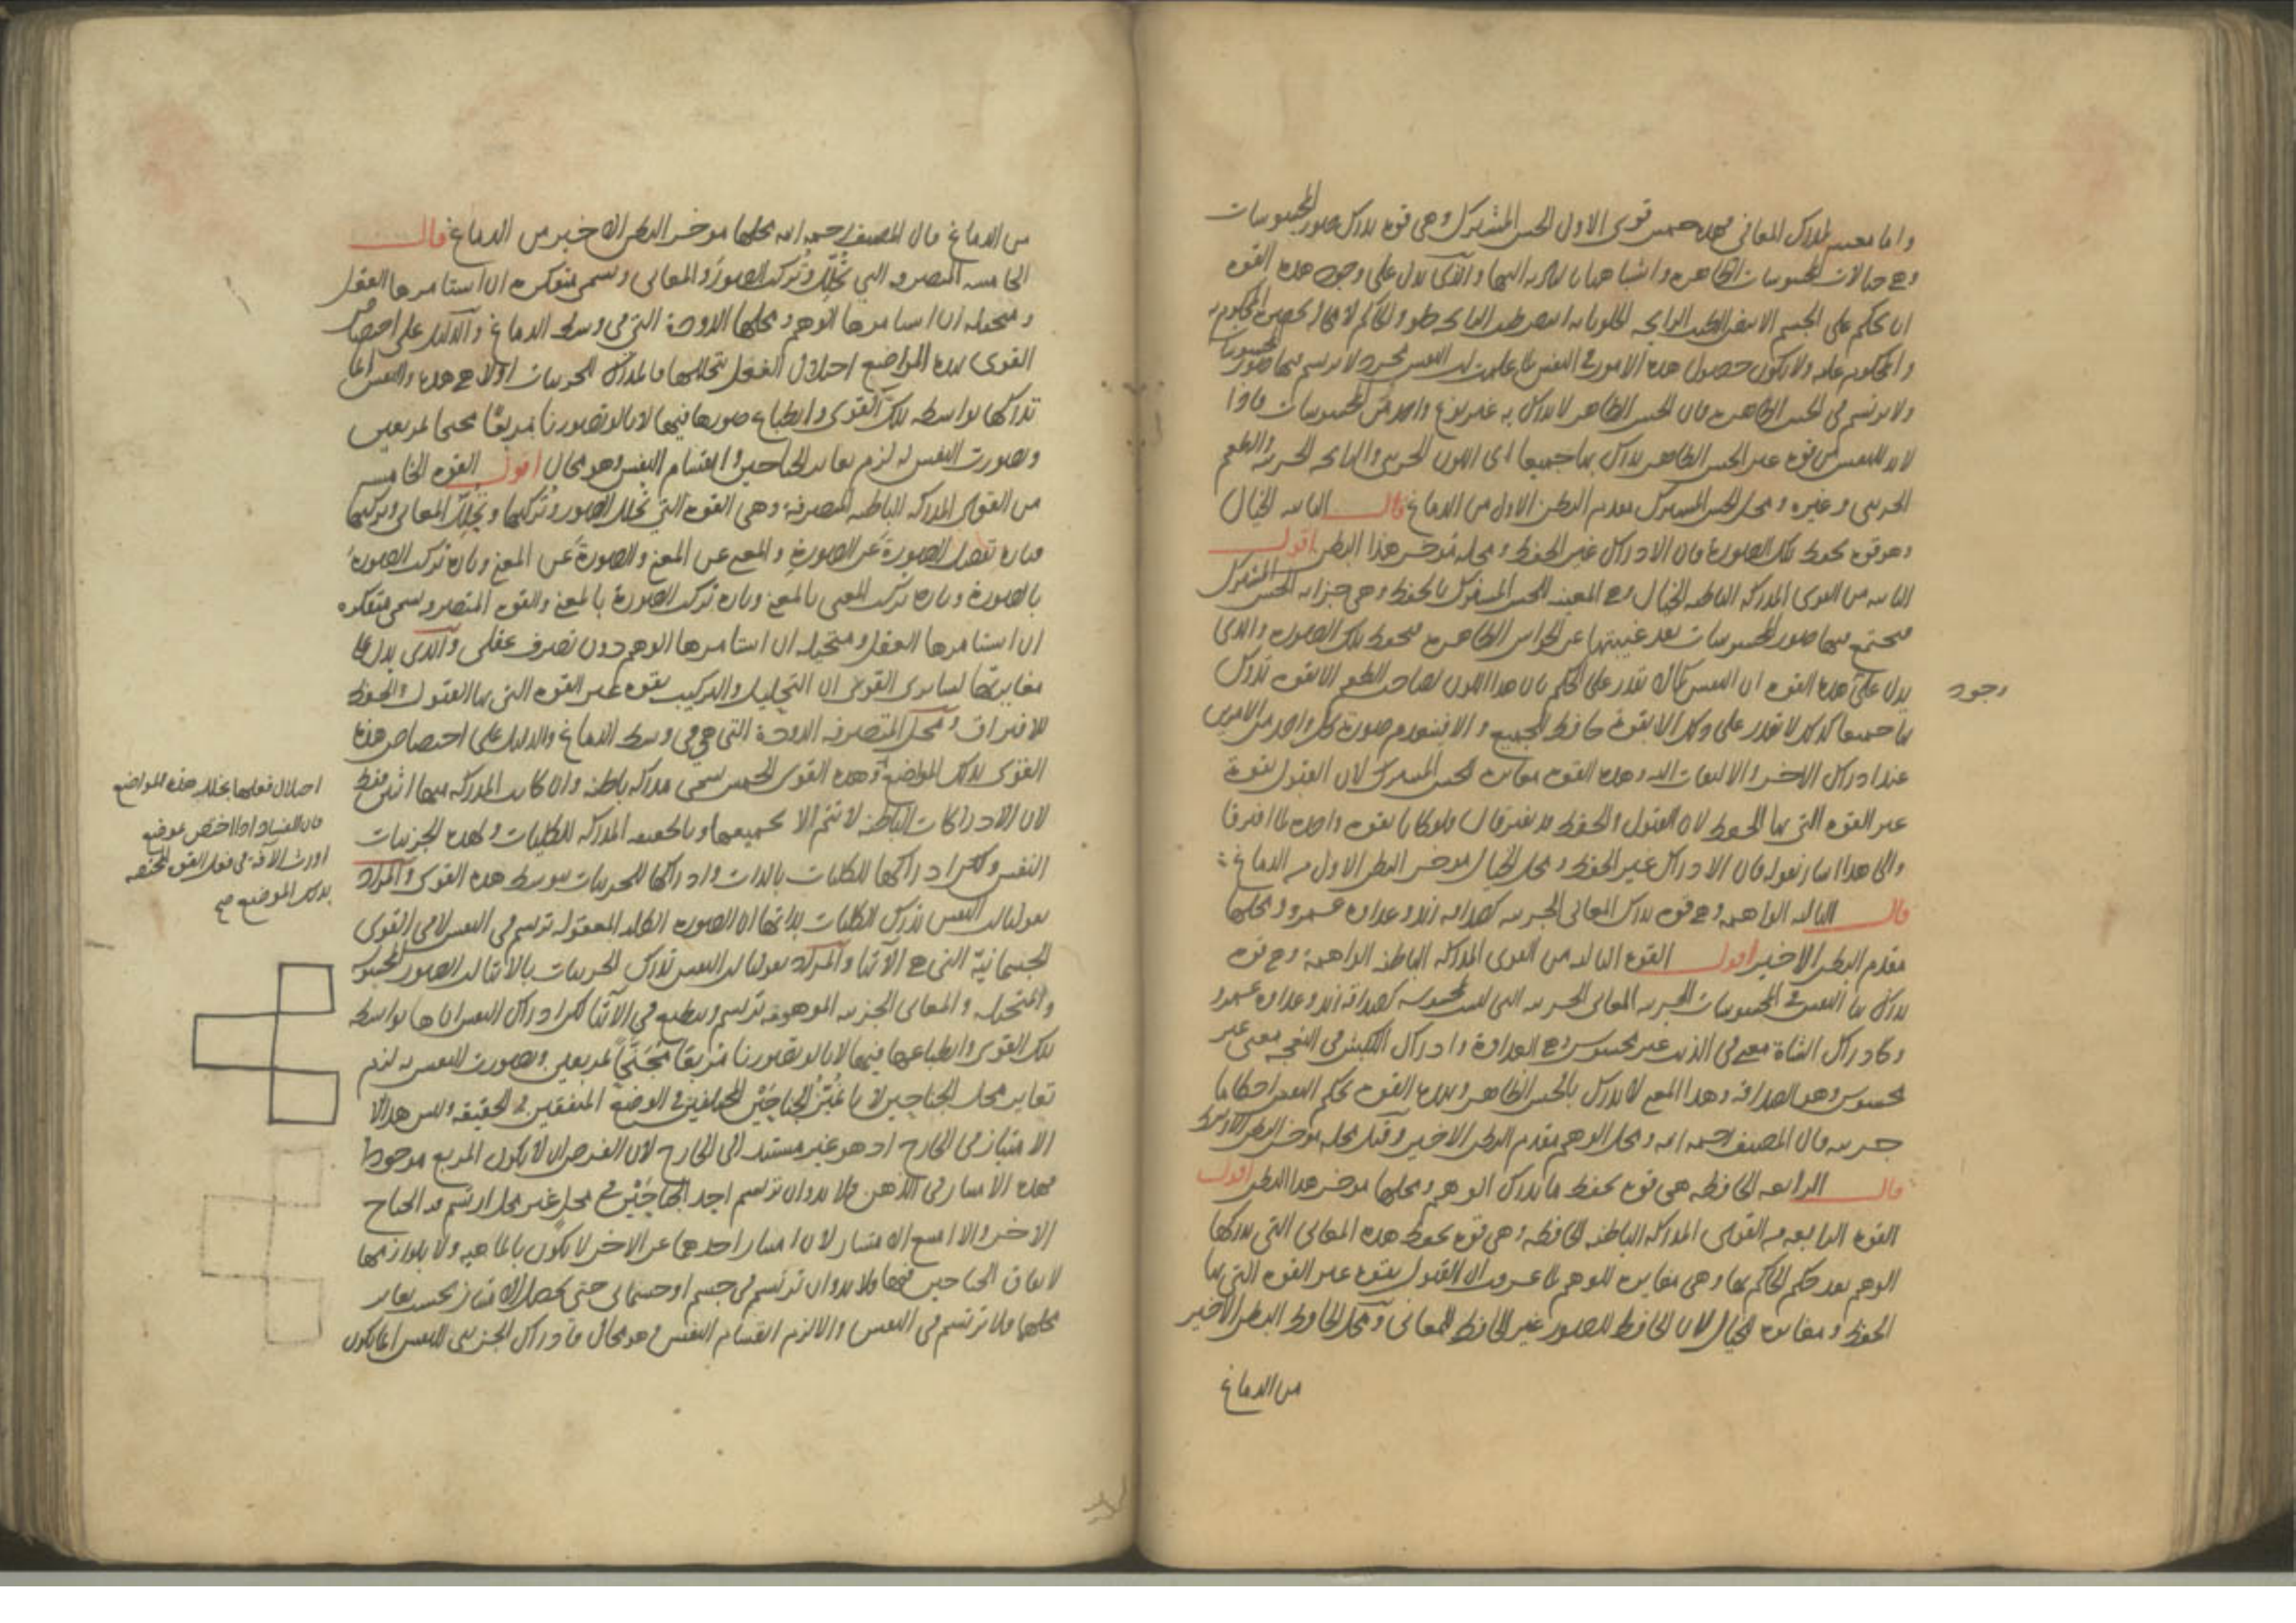 واما معين لمدرك المعاني فهذه خمس قوى الاول الحس المشترك وهي قوة تدرك صور المحسوسات
وهي خيالات المحسوسات الظاهرة واشباهها بالتادية اليها والذي يدل على وجود هذه القوة
ان يحكم على الجسم الابيض الطيب الرايحة الحلو بانه ابيض طيب الرايحة حلو والحاكم لا محالة يحضره المحكوم به
والمحكوم عليه ولا يكون حصول هذه الامور في النفس لما علمت ان النفس مجرد لا يرتسم فيها صور المحسوسات
ولا يرتسم في الحس الظاهر فان الحس الظاهر لا يدرك به غير نوع واحد من المحسوسات فاذا
لابد للنفس من قوة غير الحس الظاهر يدرك بها جميعها اى اللون الجزئي والرايحة الجزئية والطعم
الجزئي وغيره ومحل الحس المشترك مقدم البطن الاول من الدماغ قال الثانية الخيال
وهو قوة تحفظ تلك الصورة فان الادراك غير الحفظ ومحله مؤخر هذا البطن اقول
الثانية من القوى المدركة الباطنة الخيال وهي المعينة للحس المشترك بالحفظ وهي خزانة الحس المشترك
فيجتمع فيها صور المحسوسات بعد غيبتها عن الحواس الظاهرة فيحفظ تلك الصورة والذي
يدل على هذه القوة ان النفس كما لا تقدر على الحكم بان هذا اللون لصاحب الطعم الا بقوة تدرك
وجود
بها جميعها كذلك لا تقدر على ذلك الا بقوة حافظة للجميع والا فينعدم صورة كل واحد من الامرين
عند ادراك الاخر والالتفات اليه وهذه القوة مغايرة للحس المشترك لان القبول بقوة
غير القوة التي بها الحفظ لان القبول والحفظ قد يفترقان فلو كانا بقوة واحدة لما افترقا
والى هذا اشار بقوله فان الادراك غير الحفظ ومحل الخيال مؤخر البطن الاول من الدماغ
قال الثالثة الواهمة وهي قوة تدرك المعاني الجزئية كصداقة زيد وعداوة عمرو ومحلها
مقدم البطن الاخير اقول القوة الثالثة من القوى المدركة الباطنة الواهمة وهي قوة
يدرك بها النفس في المحسوسات الجزئية المعاني الجزئية التي ليست محسوسة كصداقة زيد وعداوة عمرو
وكادراك الشاة معنى في الذئب غير محسوس وهي العداوة وادراك الكبش في النعجة معنى غير
محسوس وهو الصداقة وهذا المعنى لا يدرك بالحس الظاهر وبهذه القوة تحكم النفس احكاما
جزئية قال المصنف رحمه الله ومحل الوهم مقدم البطن الاخير وقيل محله مؤخر البطن الاوسط
قال الرابعة الحافظة هي قوة تحفظ ما يدرك الوهم ومحلها مؤخر هذا البطن اقول
القوة الرابعة من القوى المدركة الباطنة الحافظة وهي قوة تحفظ هذه المعاني التي يدركها
الوهم بعد حكم الحاكم بها وهي مغايرة للوهم لما عرفت ان القبول بقوة غير القوة التي بها
الحفظ ومغايرة للخيال لان الحافظ للصور غير الحافظ للمعاني ومحل الحافظ البطن الاخير
من الدماغ
من الدماغ قال المصنف رحمه الله محلها مؤخر البطن الاخير من الدماغ قال
الخامسة المتصرفة التي تحلل وتركب الصور والمعاني وتسمى متفكرة ان استامرها العقل
ومتخيلة ان استامرها الوهم ومحلها الدودة التي في وسط الدماغ والدليل على اختصاص
القوى بهذه المواضع اختلال الفعل بتخللها فالمدرك للجزئيات اولا هي هذه والنفس انما
تدركها بواسطة تلك القوى وانطباع صورها فيها لانا لو تصورنا مربعا مجنحا لمربعين
وتصورت النفس له لزم تغاير الجناحين وانقسام النفس وهو محال اقول القوة الخامسة
من القوى المدركة الباطنة المتصرفة وهي القوة التي تحلل الصور وتركبها وتحلل المعاني وتركبها
فتارة تفصل الصورة عن الصورة والمعنى عن المعنى والصورة عن المعنى وتارة تركب الصورة
بالصورة وتارة تركب المعنى بالمعنى وتارة تركب الصورة بالمعنى والقوة المتصرفة تسمى متفكرة
ان استامرها العقل ومتخيلة ان استامرها الوهم دون تصرف عقلي والذي يدل على
مغايرتها لسائر القوى ان التحليل والتركيب بقوة غير القوة التي بها القبول والحفظ
للافتراق ومحل المتصرفة الدودة التي هي في وسط الدماغ والدليل على اختصاص هذه
القوى بتلك المواضع وهذه القوى الخمس تسمى مدركة باطنة وان كانت المدركة منها اثنين فقط
لان الادراكات الباطنة لا تتم الا بجميعها وبالحقيقة المدركة للكليات ولهذه الجزئيات
النفس ولكن ادراكها للكليات بالذات وادراكها للجزئيات بتوسط هذه القوى والمراد
بقولنا ان النفس تدرك الكليات بذاتها ان الصورة الكلية المعقولة ترتسم في النفس لا في القوى
الجسمانية التي هي الاتنا والمراد بقولنا ان النفس تدرك الجزئيات بالاتنا ان الصور المحسوسة
والمتخيلة والمعاني الجزئية الموهومة ترتسم وينطبع في الاتنا لكن ادراك النفس اياها بواسطة
تلك القوى وانطباعها فيها لانا لو تصورنا مربعا مجنحا لمربعين وتصورت النفس به لزم
تغاير محل الجناحين لانا نميز الجناحين المختلفين في الوضع المتفقين في الحقيقة وليس هذا
الامتياز في الخارج اذ هو غير مستند الى الخارج لان الفرض ان لا يكون المربع موجودا
فهذه الامتياز في الذهن فلا بد وان ترتسم احد الجناحين في محل غير محل ارتسم فيه الجناح
الاخر والا امتنع الامتياز لان امتياز احدهما عن الاخر لا يكون بالماهية ولا بلوازمها
لاتفاق الجناحين فيها فلا بد وان ترتسم في جسم او جسماني حتى يحصل الامتياز بحسب تغاير
محلهما فلا ترتسم في النفس والا لزم انقسام النفس وهو محال فادراك الجزئي للنفس انما يكون
اختلال فعلها بخلل هذه المواضع
فان الفساد اذا اختص بموضع
اورث الآفة في فعل القوى المختصة
بذلك الموضع صح